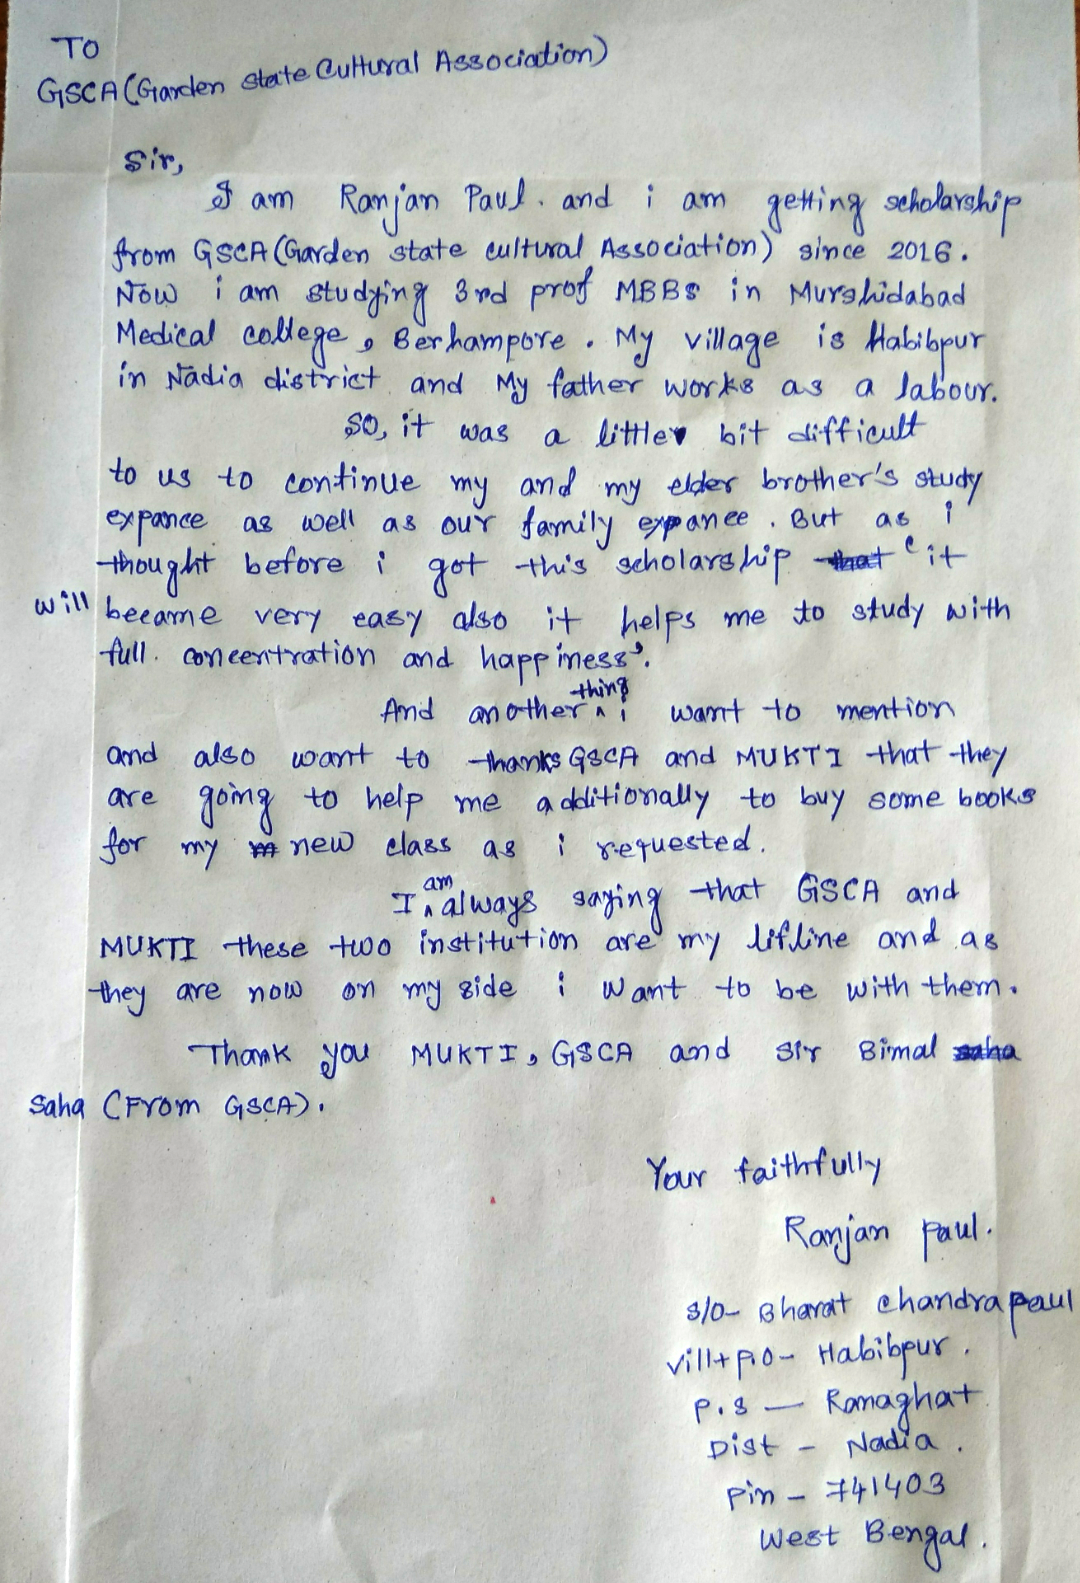 TO
GSCA (Garden state Cultural Association)
Sir,
I am Ranjan Paul. and i am getting scholarship
from GSCA (Garden state cultural Association) since 2016.
Now i am studying 3rd prof MBBS in Murshidabad
Medical college, Berhampore. My village is Habibpur
in Nadia district and My father works as a labour.
SO, it was a little bit difficult
to us to continue my and my elder brother's study
expance as well as our family expance. But as i
thought before i got this scholarship that "it
will became very easy also it helps me to study with
full. concentration and happiness".
And another thing i want to mention
and also want to thanks GSCA and MUKTI that they
are going to help me additionally to buy some books
for my new class as i requested.
I am always saying that GSCA and
MUKTI these two institution are my lifline and as
they are now on my side i want to be with them.
Thank you MUKTI, GSCA and Sir Bimal saha
Saha (From GSCA).
Your faithfully
Ranjan paul.
S/O- Bharat chandra paul
vill+p.o- Habibpur.
P.S — Ranaghat
Dist - Nadia.
Pin - 741403
West Bengal.